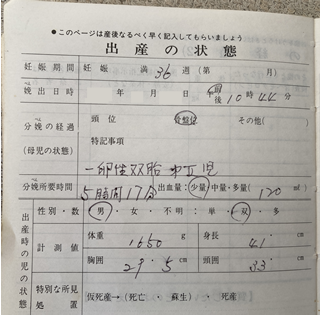 ●このページは産後なるべく早く記入してもらいましょう
出産の状態
妊娠期間 妊娠 満 36 週（第 月）
娩出日時 年 月 日 午前 後 10 時 44 分
分娩の経過 頭位 骨盤位 その他（ ）
（母児の状態） 特記事項
一卵性双胎 第Ⅱ児
分娩所要時間 5時間17分 出血量：少量・中量・多量（120 ml）
出産時の児の状態
性別・数 男・女・不明：単・双・多
計測値 体重 1650 g 身長 41. cm
胸囲 29.5 cm 頭囲 33. cm
特別な所見
処置 仮死産→（死亡・蘇生）・死産